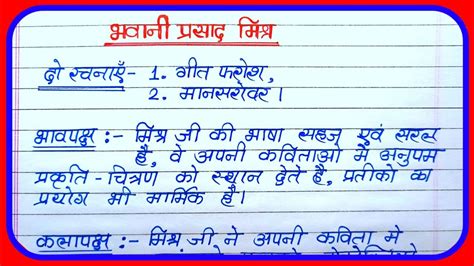 भवानी प्रसाद मिश्र
दो रचनाएँ- 1. गीत फरोश,
2. मानसरोवर।
भावपक्ष :- मिश्र जी की भाषा सहज एवं सरल
है, वे अपनी कविताओं में अनुपम
प्रकृति-चित्रण को स्थान देते है, प्रतीको का
प्रयोग भी मार्मिक है।
कलापक्ष :- मिश्र जी ने अपनी कविता मे